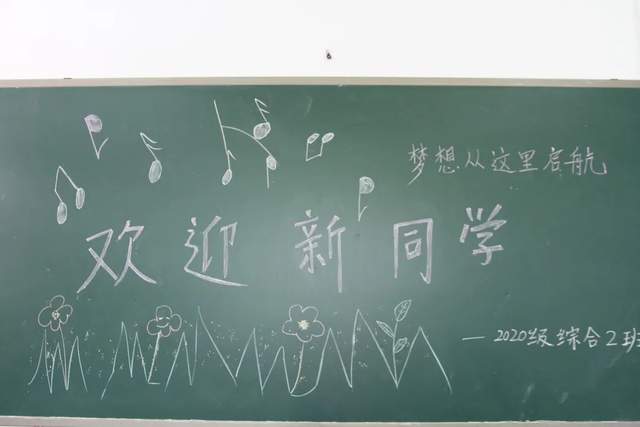 梦想从这里启航
欢迎新同学
—2020级综合2班